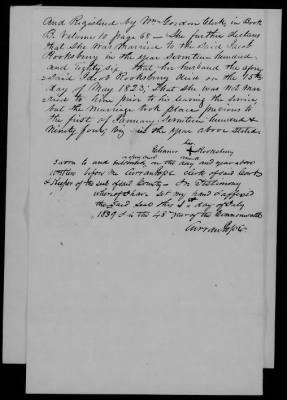 And Registered by Wm Gordon Clerk, in Book
B. Volume 10 page 68 - She further declares
that she was married to the said Jacob
Rooksbury in the year Seventeen hundred
and eighty six that her husband the afore
said Jacob Rooksbury died on the 15th
day of May 1823; that she was not mar
ried to him prior to his leaving the service,
but the marriage took place previous to
the first of January Seventeen hundred &
Ninety four, in the year above stated.
her
Eleanor + Rooksbury
mark
Sworn to and subscribed, on the day and year above
written before me clerk of said Court
& Keeper of the seal of said County - In Testimony
whereof I have set my hand & affixed
the said seal this 1st day of July
1839 & in the 48th year of the Commonwealth